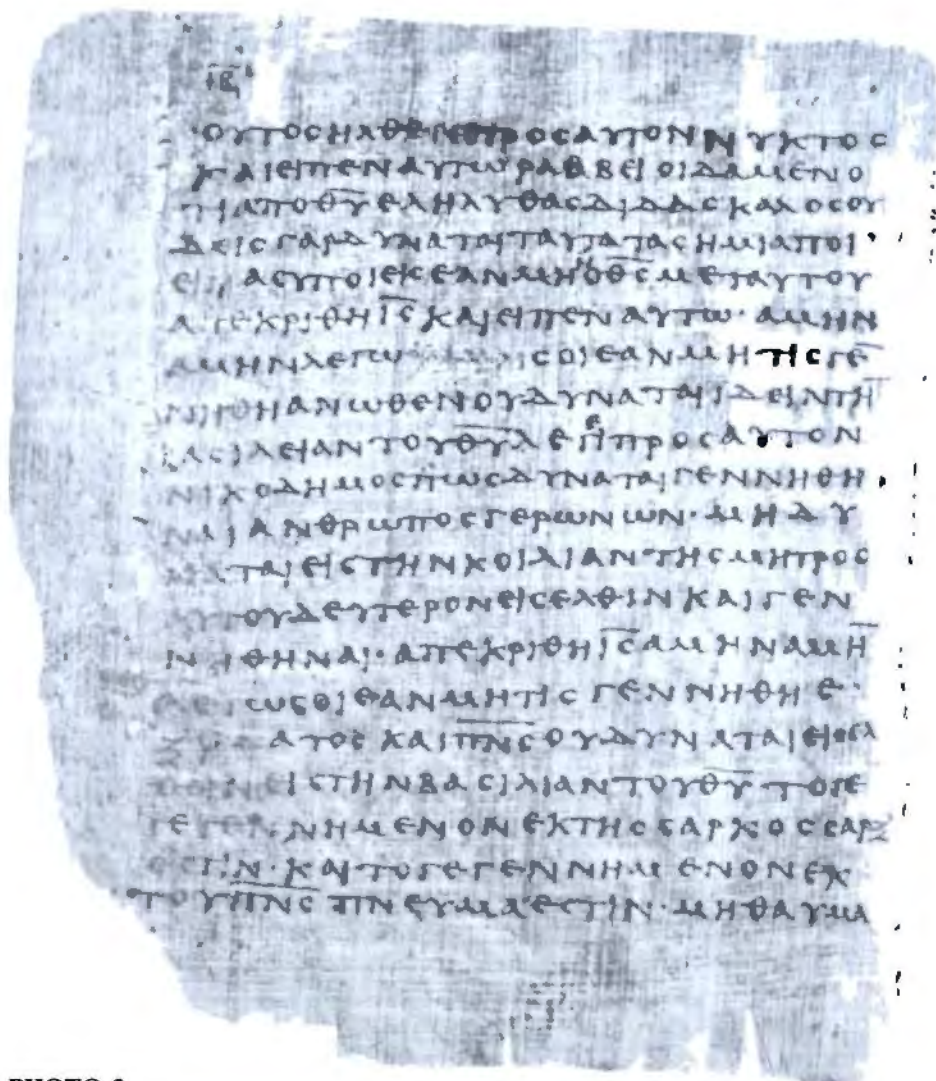 ΙϚ
·ΟΥΤΟϹΗΛΘΕΝ ΠΡΟϹΑΥΤΟΝΝΥΚΤΟϹ
ΚΑΙΕΙΠΕΝΑΥΤΩΡΑΒΒΕΙΟΙΔΑΜΕΝΟ
ΤΙΑΠΟΘ̅Υ̅ΕΛΗΛΥΘΑϹΔΙΔΑϹΚΑΛΟϹΟΥ
ΔΕΙϹΓΑΡΔΥΝΑΤΑΙΤΑΥΤΑΤΑϹΗΜΙΑΠΟΙ
ΑϹΥΠΟΙΕΙϹΕΑΝΜΗΟΘ̅Ϲ̅ΜΕΤΑΥΤΟΥ
ΑΠΕΚΡΙΘΗΙ̅Ϲ̅ΚΑΙΕΙΠΕΝΑΥΤΩ·ΑΜΗΝ
ΑΜΗΝΛΕΓΩ ϹΟΙΕΑΝΜΗΤΙϹΓΕ̅
ΝΗΘΗΑΝΩΘΕΝΟΥΔΥΝΑΤΑΙΙΔΕΙΝΤΗ̅
ΒΑϹΙΛΕΙΑΝΤΟΥΘ̅Υ̅ΛΕΓΕΙΠΡΟϹΑΥΤΟΝ
ΝΙΚΟΔΗΜΟϹΠΩϹΔΥΝΑΤΑΙΓΕΝΝΗΘΗ
ΝΑΙΑΝΘΡΩΠΟϹΓΕΡΩΝΩΝ·ΜΗΔΥ
ΤΑΙΕΙϹΤΗΝΚΟΙΛΙΑΝΤΗϹΜΗΤΡΟϹ
ΟΥΔΕΥΤΕΡΟΝΕΙϹΕΛΘΙΝΚΑΙΓΕΝ
ΝΗΘΗΝΑΙ·ΑΠΕΚΡΙΘΗΙ̅Ϲ̅ΑΜΗΝΑΜΗ̅
ΩϹΟΙΕΑΝΜΗΤΙϹΓΕΝΝΗΘΗΕ·
ΑΤΟϹΚΑΙΠ̅Ν̅Ϲ̅ΟΥΔΥΝΑΤΑΙΕΙϹΕΛ
ΕΙϹΤΗΝΒΑϹΙΛΙΑΝΤΟΥΘ̅Υ̅ΤΟΓΕ
ΓΕΓΕΝΝΗΜΕΝΟΝΕΚΤΗϹϹΑΡΚΟϹϹΑΡΞ
ΕϹΤΙΝ·ΚΑΙΤΟΓΕΓΕΝΝΗΜΕΝΟΝΕΚ
ΤΟΥΠ̅Ν̅Ϲ̅ΠΝΕΥΜΑΕϹΤΙΝ·ΜΗΘΑΥΜΑ